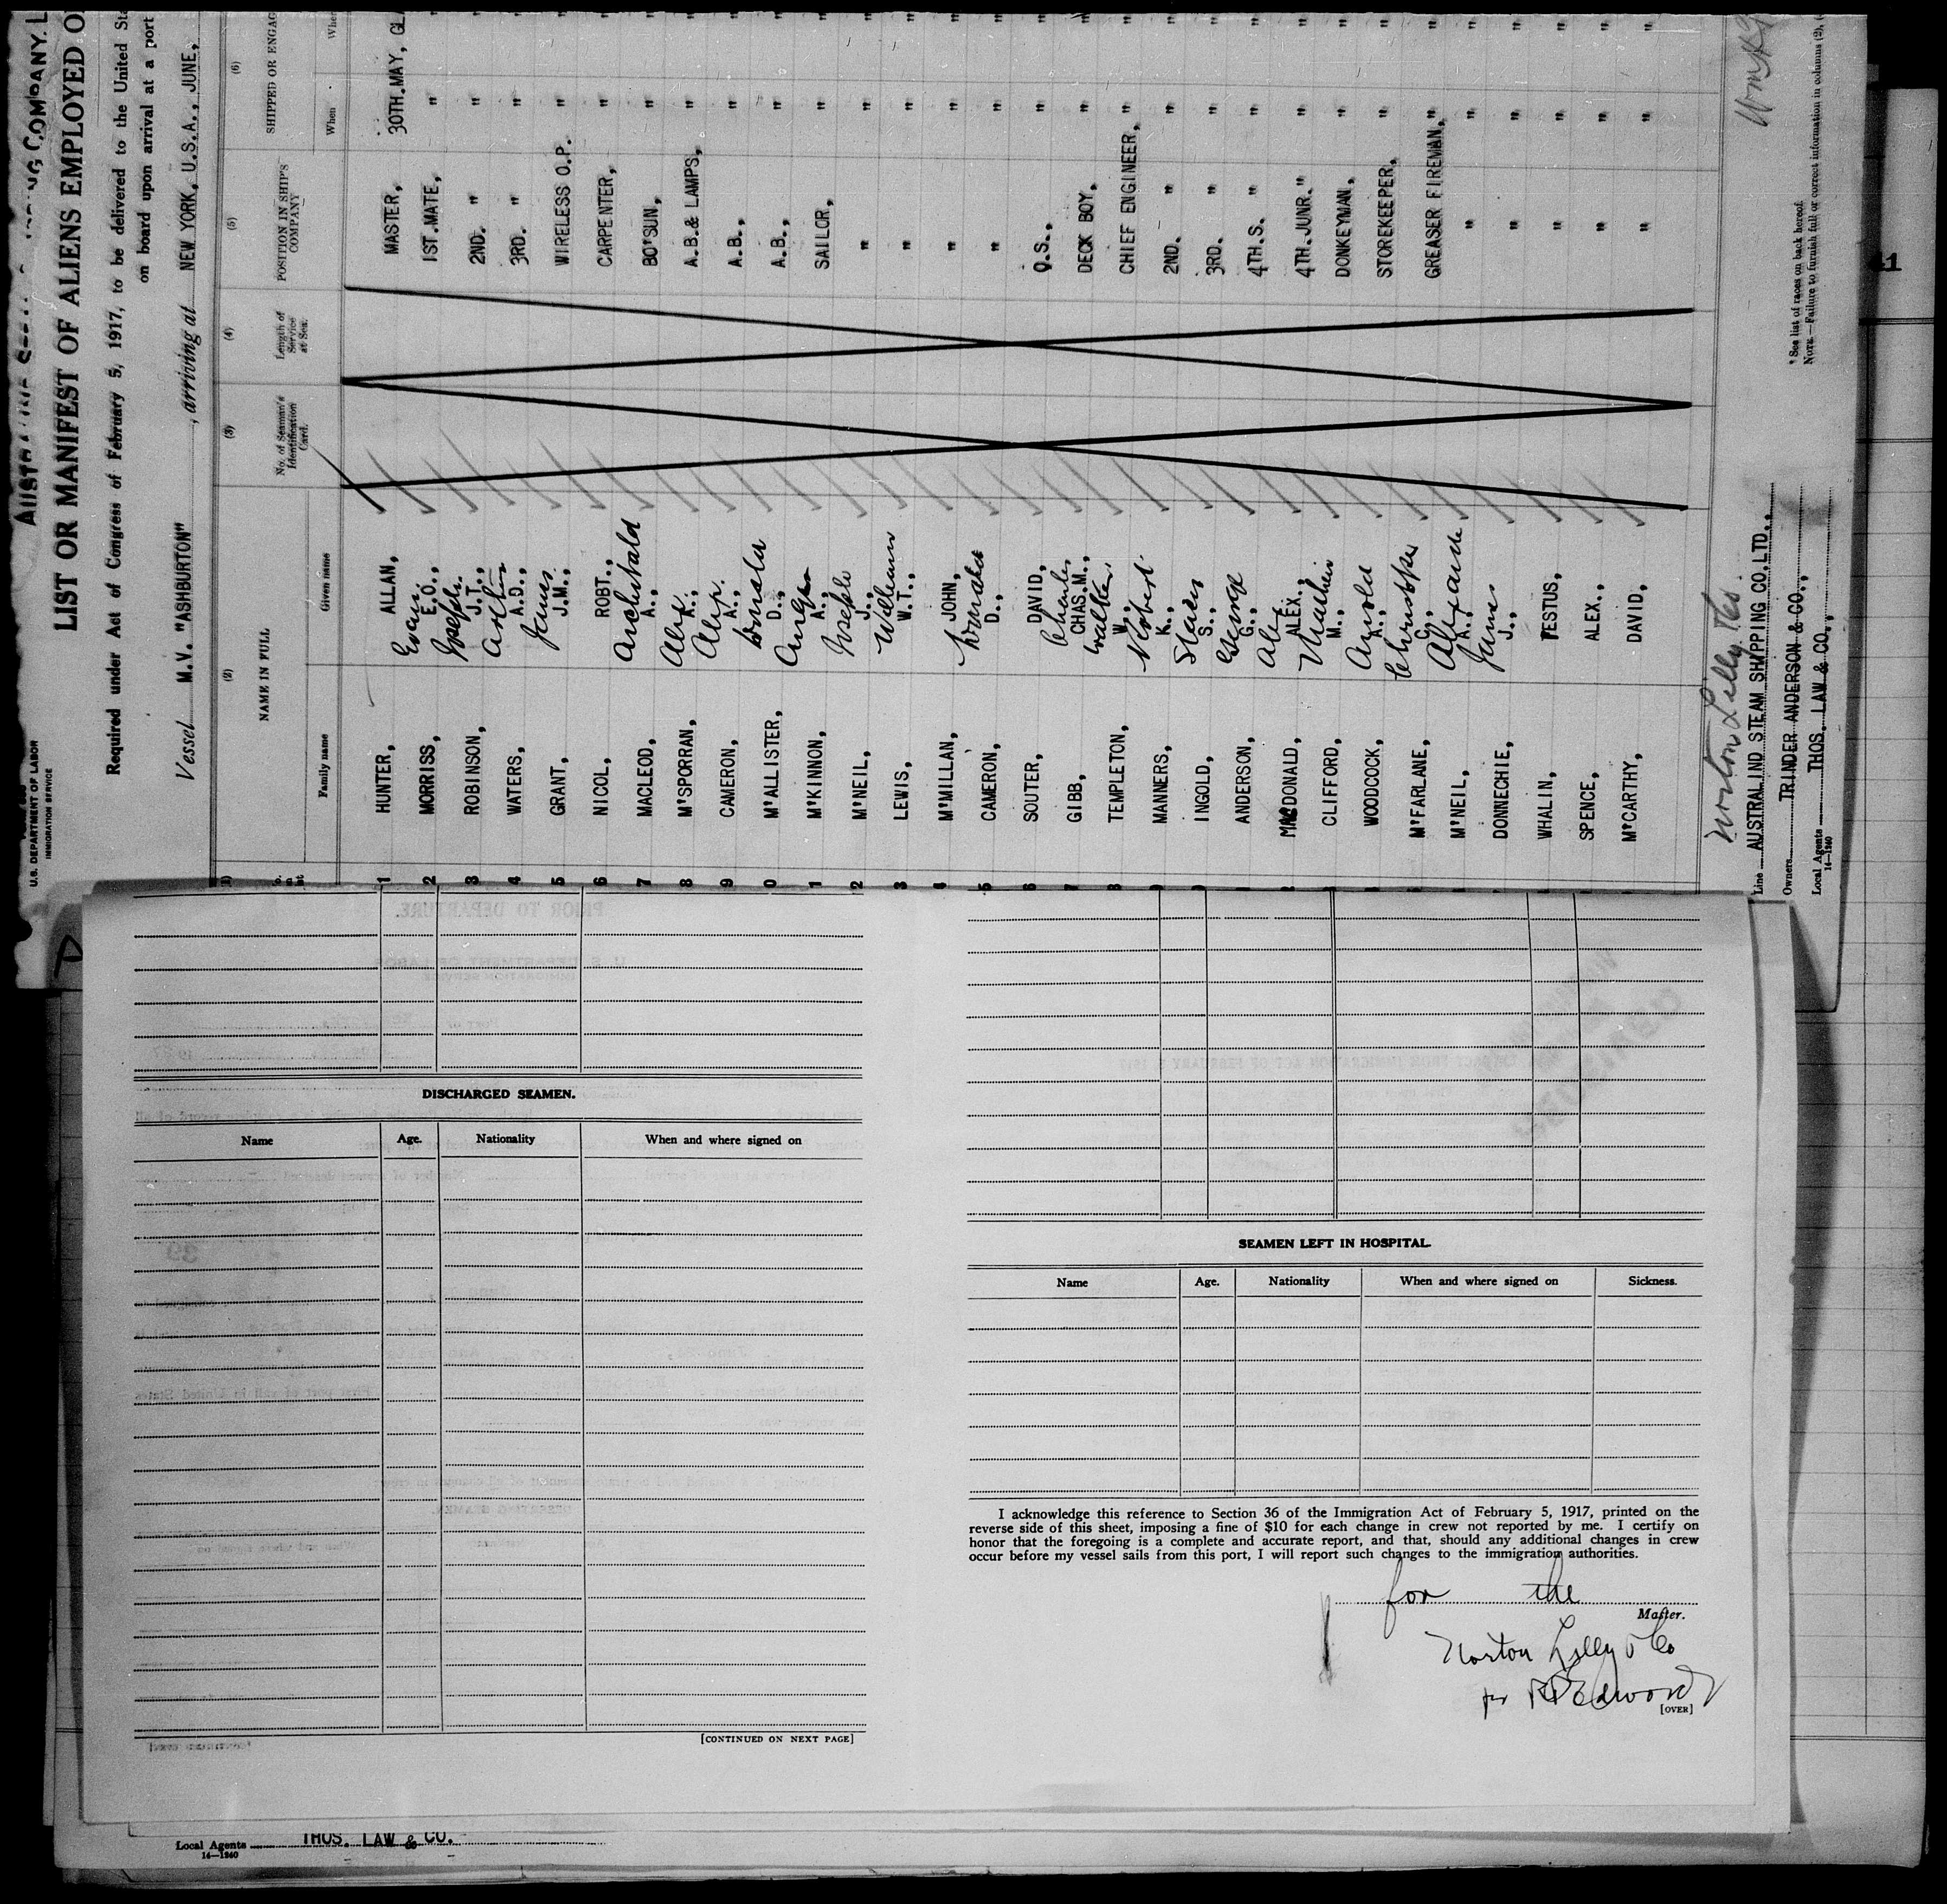 AUSTRALIND STEAM SHIPPING COMPANY. L
U.S. DEPARTMENT OF LABOR
IMMIGRATION SERVICE
LIST OR MANIFEST OF ALIENS EMPLOYED O
Required under Act of Congress of February 5, 1917, to be delivered to the United Sta
on board upon arrival at a port
Vessel M.V. "ASHBURTON", arriving at NEW YORK, U.S.A., JUNE,
(2) (3) (4) (5) (6)
NAME IN FULL No. of Seaman's Identification Card. Length of Service at Sea. POSITION IN SHIP'S COMPANY SHIPPED OR ENGAG
Family name Given name When Wher
1 HUNTER, ALLAN, MASTER, 30TH.MAY, GL
2 MORRISS, Evan. E.O., 1ST.MATE, " "
3 ROBINSON, Joseph. J.T., 2ND. " " "
4 WATERS, Arthur A.D., 3RD. " " "
5 GRANT, James J.M., WIRELESS O.P. " "
6 NICOL, ROBT., CARPENTER, " "
7 MACLEOD, Archibald A., BO'SUN, " "
8 M'SPORRAN, Alex. A., A.B.& LAMPS, " "
9 CAMERON, Alex. A., A.B., " "
0 M'ALLISTER, Donald D., A.B., " "
1 M'KINNON, A., SAILOR, " "
2 M'NEIL, Joseph J., " " "
3 LEWIS, William W.T., " " "
4 M'MILLAN, JOHN, " " "
5 CAMERON, Donald D., " " "
6 SOUTER, DAVID, O.S., " "
7 GIBB, Charles CHAS.M., DECK BOY, " "
8 TEMPLETON, Walter W., CHIEF ENGINEER, " "
9 MANNERS, K., 2ND. " " "
INGOLD, S., 3RD. " " "
ANDERSON, George G., 4TH.S. " " "
MACDONALD, Alex ALEX., 4TH.JUNR." " "
CLIFFORD, M., DONKEYMAN, " "
WOODCOCK, Arnold A., STOREKEEPER, " "
M'FARLANE, C., GREASER FIREMAN, " "
M'NEIL, Alexander A., " " "
DONNECHIE, James J., " " "
WHALIN, TESTUS, " " "
SPENCE, ALEX., " " "
M'CARTHY, DAVID, " " "
Norton Lilly & Co.
Line AUSTRALIND STEAM SHIPPING CO.LTD.,
Owners TRINDER ANDERSON & CO.,
Local Agents THOS. LAW & CO.,
14—1240
* See list of races on back hereof.
NOTE.—Failure to furnish full or correct information in columns (2), (
41
DISCHARGED SEAMEN.
Name Age. Nationality When and where signed on
[CONTINUED ON NEXT PAGE]
SEAMEN LEFT IN HOSPITAL.
Name Age. Nationality When and where signed on Sickness.
I acknowledge this reference to Section 36 of the Immigration Act of February 5, 1917, printed on the
reverse side of this sheet, imposing a fine of $10 for each change in crew not reported by me. I certify on
honor that the foregoing is a complete and accurate report, and that, should any additional changes in crew
occur before my vessel sails from this port, I will report such changes to the immigration authorities.
for the
Master.
Norton Lilly & Co
per R Edwards
[OVER]
Local Agents THOS. LAW & CO.
14—1240